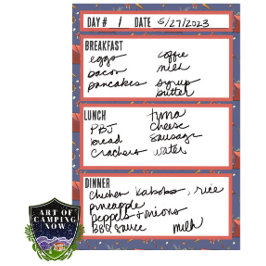 DAY # / DATE 5/27/2023
BREAKFAST
eggs coffee
bacon milk
pancakes syrup
butter
LUNCH tuna
PBJ cheese
bread sausage
crackers water
DINNER
chicken kabobs, rice
pineapple
peppers + onions
BBQ sauce milk
ART OF
CAMPING
NOW